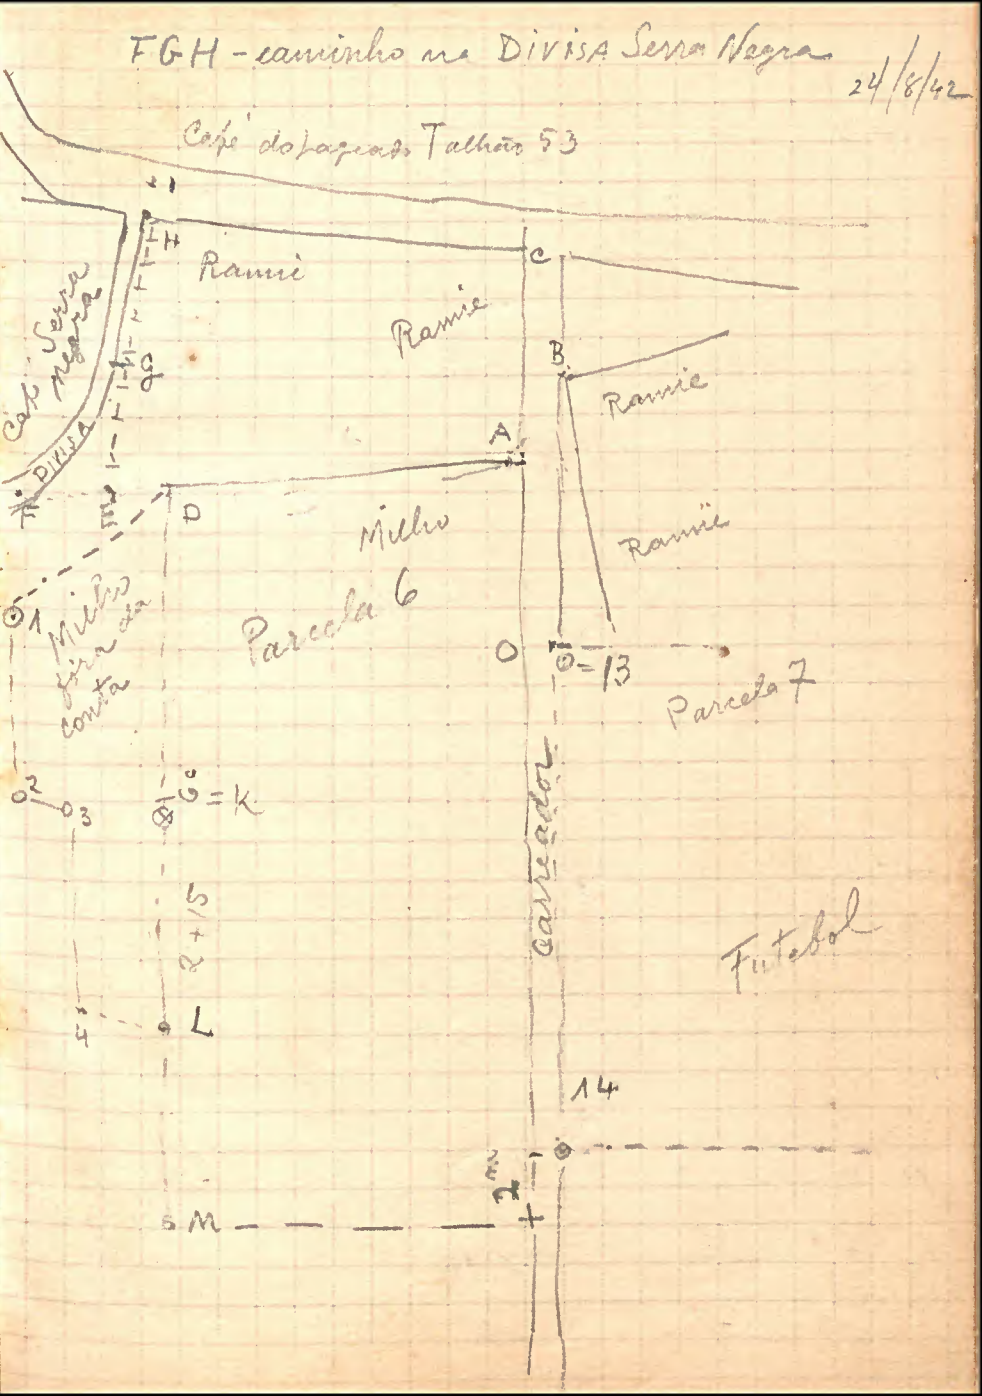 FGH - caminho na DIVISA Serra Negra
24/8/42
Café do Lageado Talhão 53
I
H
Ramie
C
Ramie
Café Serra
negra
B
g
Ramie
A
DIVISA
F
E
D
Milho
Ramie
1
Milho
fóra da
conta
Parcela 6
O
O = 13
Parcela 7
2
3
6a = K
carreador
2 + 15
Futebol
4
L
14
2 m
M